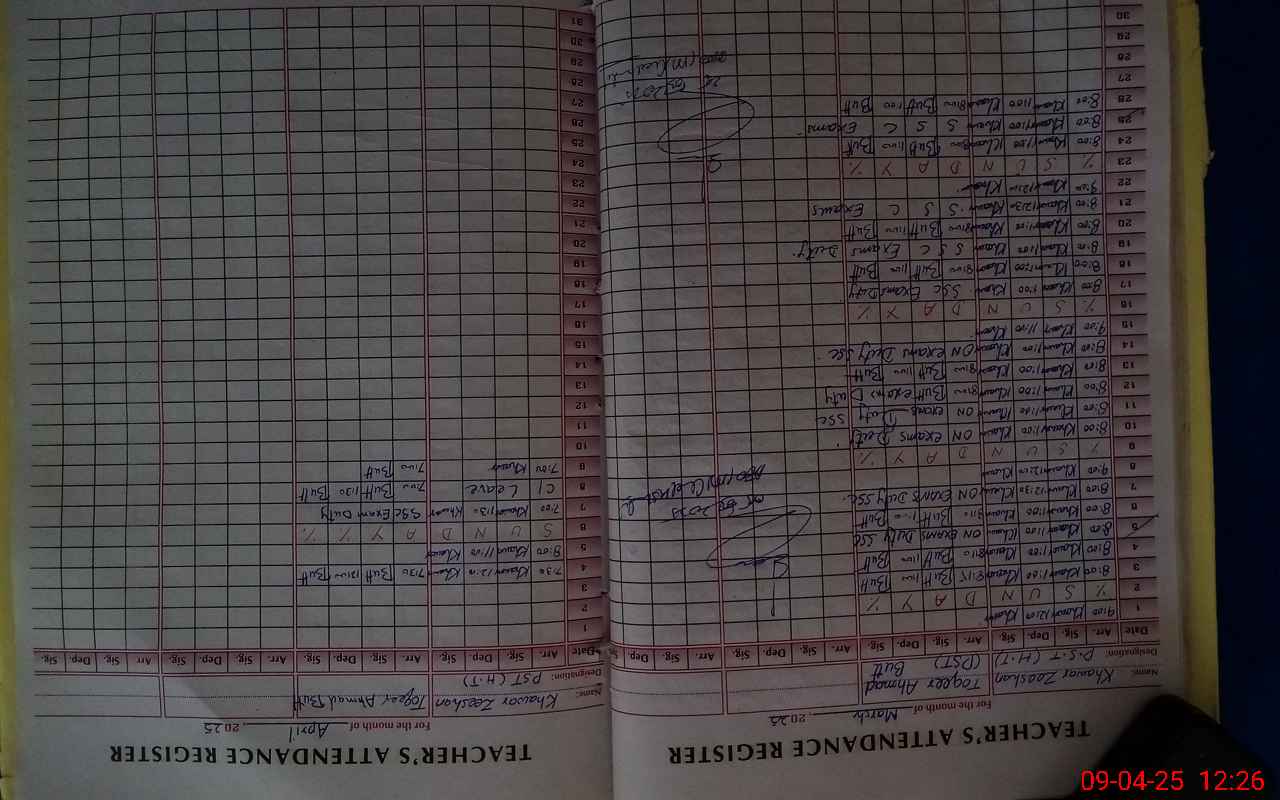 TEACHER'S ATTENDANCE REGISTER
For the month of March 2025
Name: Khawar Zeeshan Toqeer Ahmad Butt
Designation: P.S.T (H.T) (PST)
Date Arr. Sig. Dep. Sig. Arr. Sig. Dep. Sig. Arr. Sig. Dep. Sig. Arr. Sig. Dep. Sig.
1 9:00 Khawar 12:00 Khawar
2 % S U N D A Y %
3 8:00 Khawar 1:00 Khawar 8:15 Butt 1:00 Butt
4 8:00 Khawar 1:00 Khawar 8:10 Butt 1:00 Butt
5 8:00 Khawar 1:00 Khawar ON EXAMS Duty SSC
6 8:00 Khawar 1:00 Khawar 8:10 Butt 1:00 Butt
7 8:00 Khawar 12:30 Khawar ON EXAMS Duty SSC
8 9:00 Khawar 12:00 Khawar
9 % S U N D A Y %
10 8:00 Khawar 1:00 Khawar ON EXAMS Duty
11 8:00 Khawar 1:00 Khawar ON exams Duty SSC
12 8:00 Khawar 1:00 Khawar 8:00 Butt exams Duty
13 8:00 Khawar 1:00 Khawar 8:00 Butt 1:00 Butt
14 8:00 Khawar 1:00 Khawar ON exams Duty SSC
15 9:00 Khawar 11:00 Khawar
16 % S U N D A Y %
17 8:00 Khawar 1:00 Khawar SSC Exams Duty
18 8:00 Khawar 1:00 Khawar 8:00 Butt 1:00 Butt
19 8:00 Khawar 1:00 Khawar S S C Exams Duty
20 8:00 Khawar 1:00 Khawar 8:00 Butt 1:00 Butt
21 8:00 Khawar 12:30 Khawar S S C Exams
22 9:00 Khawar 12:00 Khawar
23 % S U N D A Y %
24 8:00 Khawar 1:00 Khawar 8:00 Butt 1:00 Butt
25 8:00 Khawar 1:00 Khawar S S C Exams
26 8:00 Khawar 1:00 Khawar 8:00 Butt 1:00 Butt
27
28
29
30
TEACHER'S ATTENDANCE REGISTER
For the month of April 2025
Name: Khawar Zeeshan Toqeer Ahmad Butt
Designation: PST (H.T)
Date Arr. Sig. Dep. Sig. Arr. Sig. Dep. Sig. Arr. Sig. Dep. Sig. Arr. Sig. Dep. Sig.
1
2
3
4 7:30 Khawar 12:00 Khawar 7:30 Butt 12:00 Butt
5 8:00 Khawar 11:00 Khawar
6 S U N D A Y % %
7 7:00 Khawar 1:30 Khawar SSC Exam Duty
8 C/ Leave 7:00 Butt 1:30 Butt
9 7:00 Khawar 7:00 Butt
10
11
12
13
14
15
16
17
18
19
20
21
22
23
24
25
26
27
28
29
30
31
09-04-25 12:26